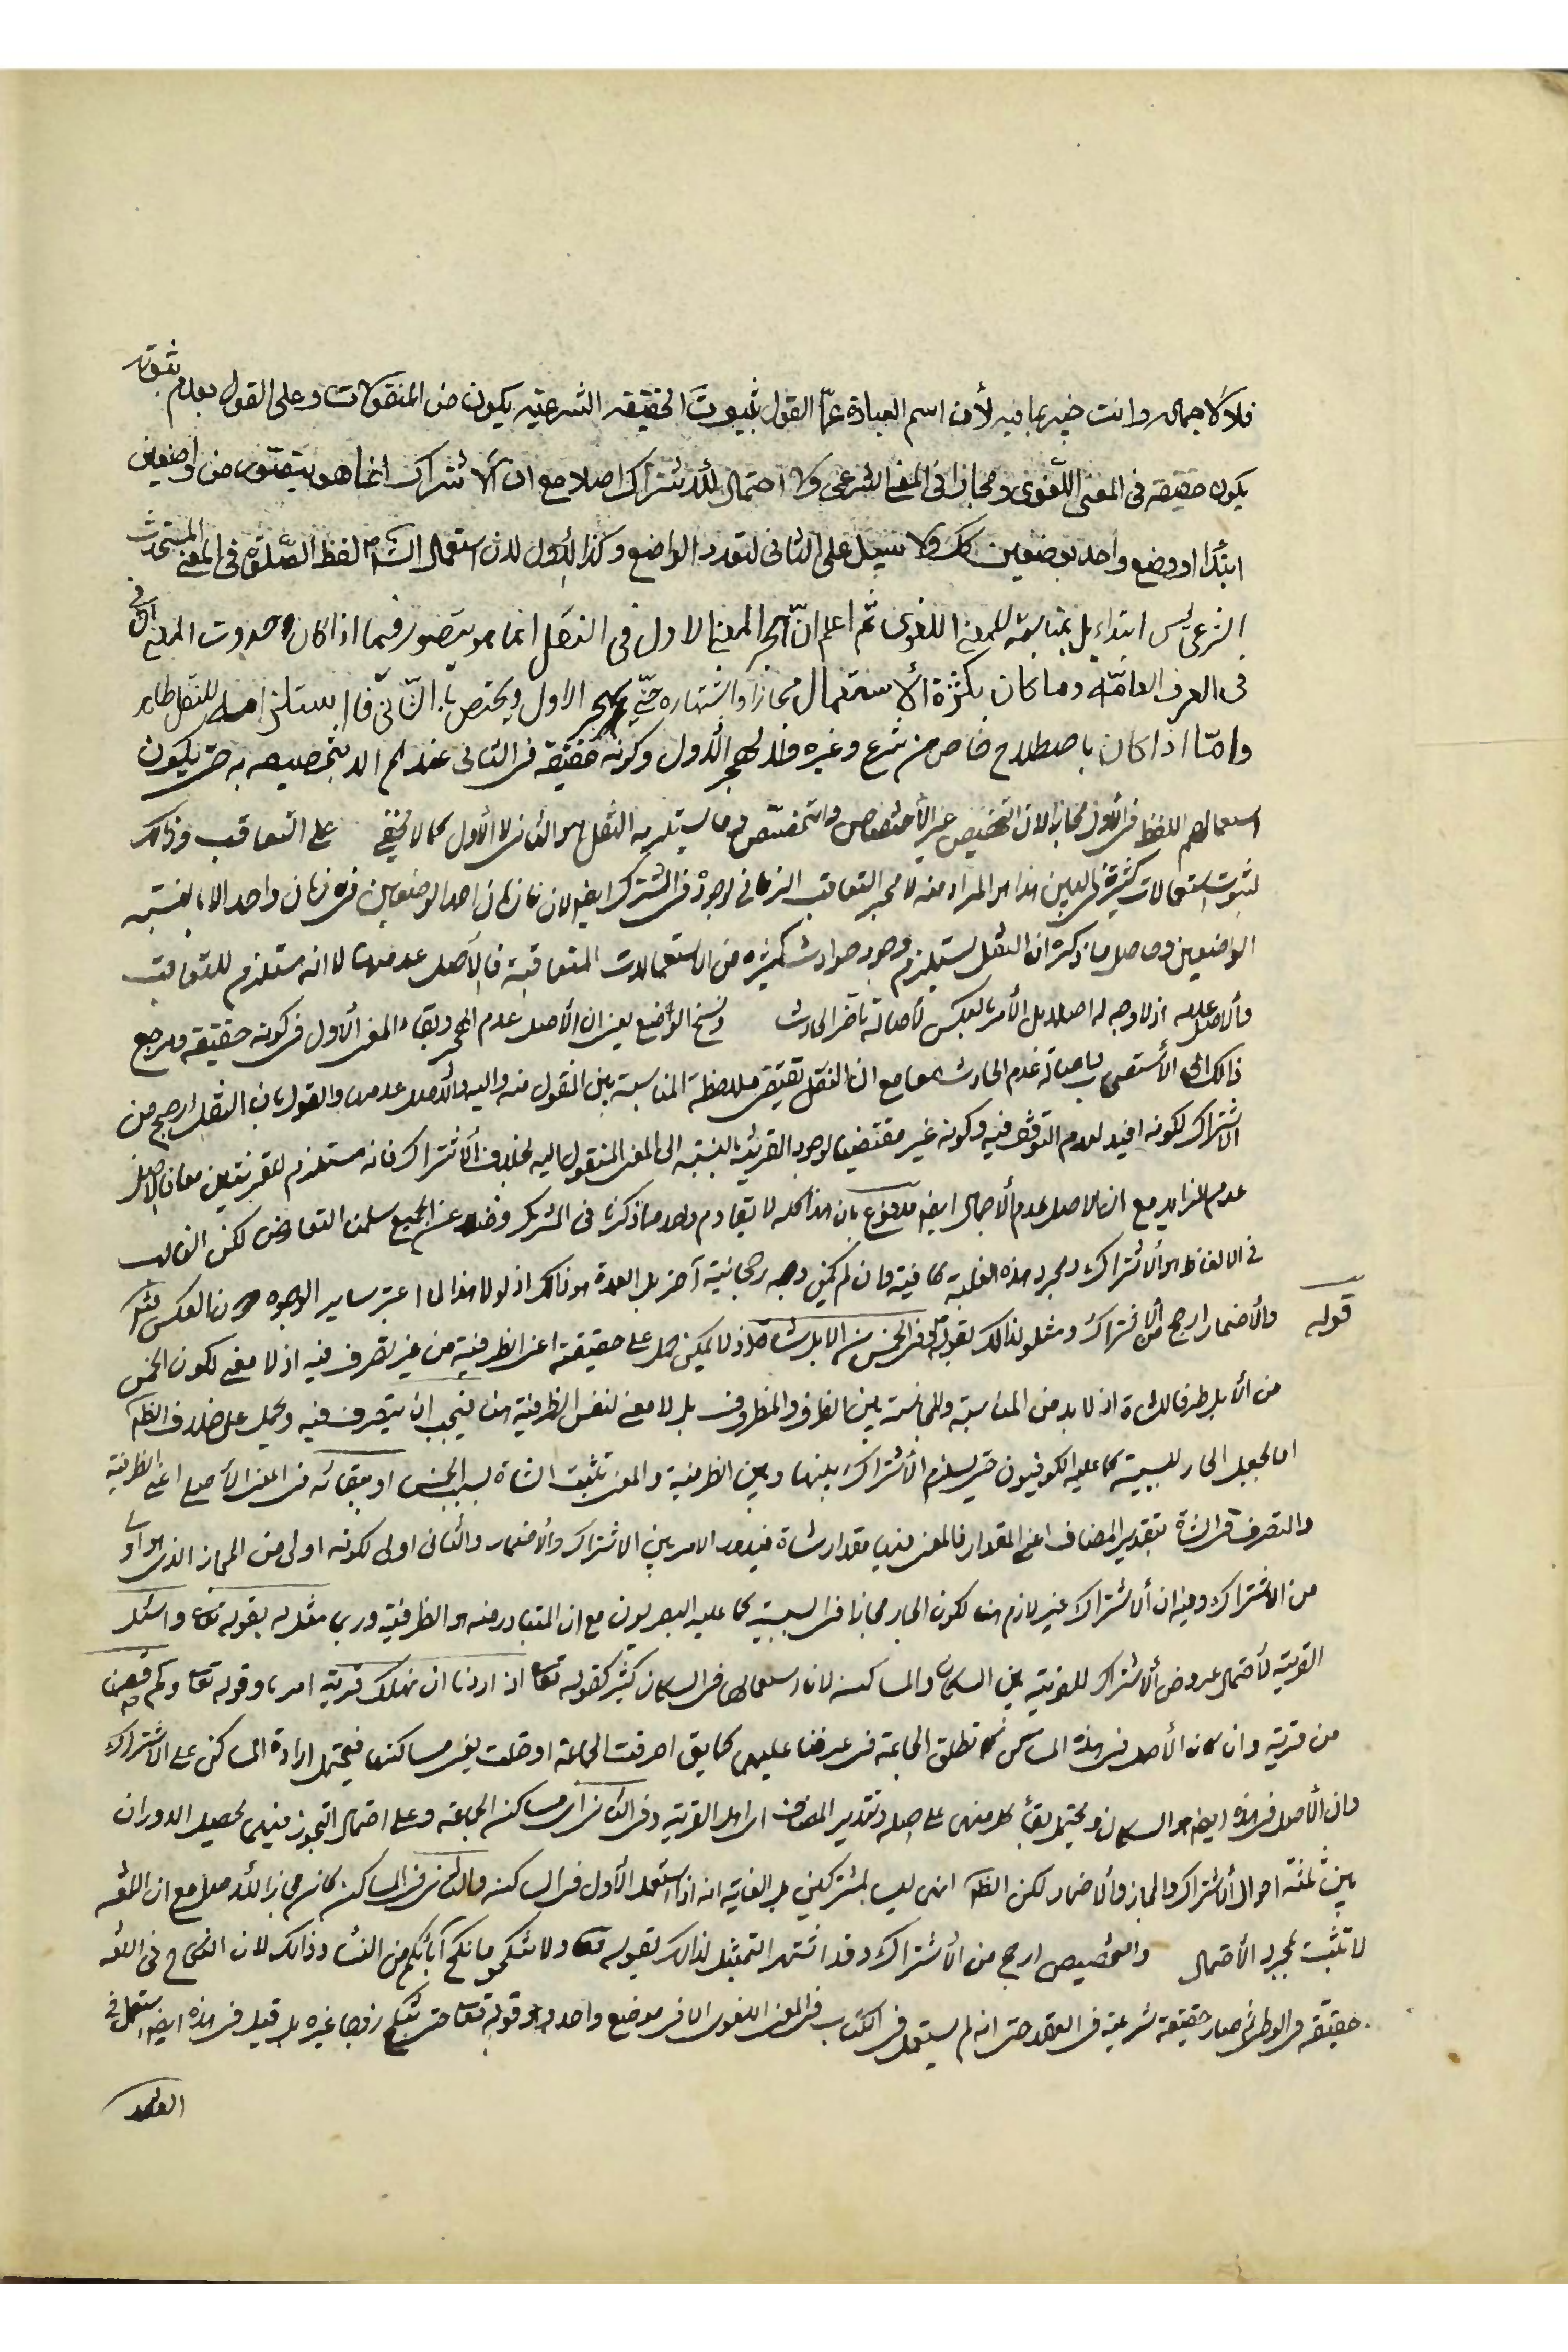 فلا لاجمال وانت خبير بما فيه لأن اسم العبادة عمّا القول بثبوت الحقيقه الشرعيّه يكون من المنقولات وعلى القول بعدم ثبوته
يكون حقيقه في المعنى اللّغوى ومجازا في المعنى الشرعي ولا احتمال للاشتراك اصلا مع ان الاشتراك انما هو يتصوّر من واضعين
ابتدأ او وضع واحد بوضعين كك ولا سبيل على الثانى لتعدد الواضع وكذا الأول لان استعمال الشارع لفظ الصّلوة في المعنى المستحدث
الشرعى ليس ابتداء بل بمناسبة للمعنى اللغوى ثم اعلم انّ هجر المعنى الاول فى النقل انما هو يتصور فيما اذا كان حدوث المعنى الثانى
فى العرف العامّة وما كان بكثرة الأستعمال مجازا واشتهاره حتى يهجر الاول ويختص بالثّانى فان استلزامه للنقل ظاهر
وامّا اذا كان باصطلاح خاص من شرع وغيره فلا يهجر الأول وكونه حقيقة فى الثانى عندهم الا بتخصيصه به حتى يكون
استعمالهم اللفظ فى الأول مجازا لان التخصيص غير الأختصاص والتخصّص وما يستلزمه النقل هو الثانى لا الأول كما لا يخفى على التعاقب وذلك
لثبوت استعمالات كثيرة فى البين هذا هو المراد منه لا مجرد التعاقب الزمانى لوجوده فى المشترك ايضا لان زمان احد الوضعين فى زمان واحد الا بالنسبة
الواضعين وحاصل ما ذكره ان النقل يستلزم وجود حوادث كثيره من الاستعمالات المتعاقبة فالاصل عدمها لا انه مستلزم للتعاقب
والاصل عدمه اذ لا وجه له اصلا بل الأمر بالعكس لأصالة تأخر الحادث ونسخ الوضع يعنى ان الأصل عدم الهجر وبقاء المعنى الأول فى كونه حقيقة ومرجع
ذلك الى الأستصحاب باصالة عدم الحادث معا مع ان النقل يقتضى ملاحظة المناسبة بين المنقول منه واليه والأصل عدمها والقول بان النقل ارجح من
الاشتراك لكونه افيد لعدم التوقف فيه وكونه غير مقتضى لوجود القرينة بالنسبة الى المعنى المنقول اليه بخلاف الأشتراك فانه مستلزم لقرينتين معا فالاصل
عدم الزايد مع ان الاصل عدم الأجمال ايضا مدفوع بان هذا كله لا يقاوم واحد ما ذكرنا فى المشترك وغض عن الجميع سلمنا التعارض لكن الغالب
فى الالفاظ هو الأشتراك ومجرد هذه الغلبة كافية وان لم يكن وجه رجحانية آخر بل العمدة هو ذلك اذ لولا هذا لما اعتبر ساير الوجوه دون العكس
قوله والأضمار ارجح من الاشتراك ومثلو لذلك بقوله فى الخمس من الابل شاة اذ لا يمكن حمل على حقيقته اعنى الظرفية من غير تصرف فيه اذ لا معنى لكون الخمس
من الأبل ظرفا للشاة اذ لا بد من المناسبة والمجانسة بين الظرف والمظروف بل لا معنى لنفس الظرفية هنا فيجب ان يتصرف فيه ويحمل على خلاف الظاهر
اما بجعل الجار للسببية كما عليه الكوفيون حتى يستلزم الأشتراك بينها وبين الظرفية والمعنى تثبت الشاة بسبب الخمس او ببقائه فى المعنى الأصلى اعنى الظرفية
والتصرف فى الشاة بتقدير المضاف اعنى المقدار فالمعنى فيها مقدار شاة فيدور الامر بين الاشتراك والأضمار والثانى اولى لكونه اولى من المجاز الذى هو اولى
من الاشتراك وفيه ان الاشتراك غير لازم هنا لكون الجار مجازا فى السببية كما عليه البصريون مع ان المتبادر منه هو الظرفية وربما مثل له بقوله تعالى واسئل
القرية لأحتمال عروض الأشتراك للقرية بين السكان والمساكن لان استعمالها فى السكان كثير كقوله تعالى اذا اردنا ان نهلك قرية امرنا وقوله تعالى وكم قصمنا
من قرية وان كان الأصل فى هذه المساكن كما تطلق الجماعة فى عرفنا عليها كما يق احرقت الجماعة او خلت يعنى مساكنها فيحتمل ارادة المساكن على الاشتراك
وان الأصل فى هذه ايضا هو السكان ويحتمل بقاء كل منها على اصله وتقدير المضاف اى اهل القرية وفى الثانى اى مساكن الجماعة وعلى احتمال التجوز فيها يحصل الدوران
بين ثلثة احوال الاشتراك والمجاز والاضمار لكن الظاهر انها ليست بمشتركين بل الغاية انه اذا استعمل الأول فى الساكنة والثانى فى المساكن كان مجازا للاصل مع ان اللغة
لا تثبت بمجرد الأحتمال والتخصيص ارجح من الأشتراك وقد اشتهر التمثيل لذلك بقوله تعالى ولا تنكحوا ما نكح آبائكم من النساء وذلك لان النكاح فى اللغة
حقيقة فى الوطى ثم صار حقيقة شرعية فى العقد حتى انه لم يستعمل فى الكتاب فى المعنى اللغوى الا فى موضع واحد وهو قوله تعالى حتى تنكح زوجا غيره بل قيل فى هذه ايضا استعمل فى
العقد